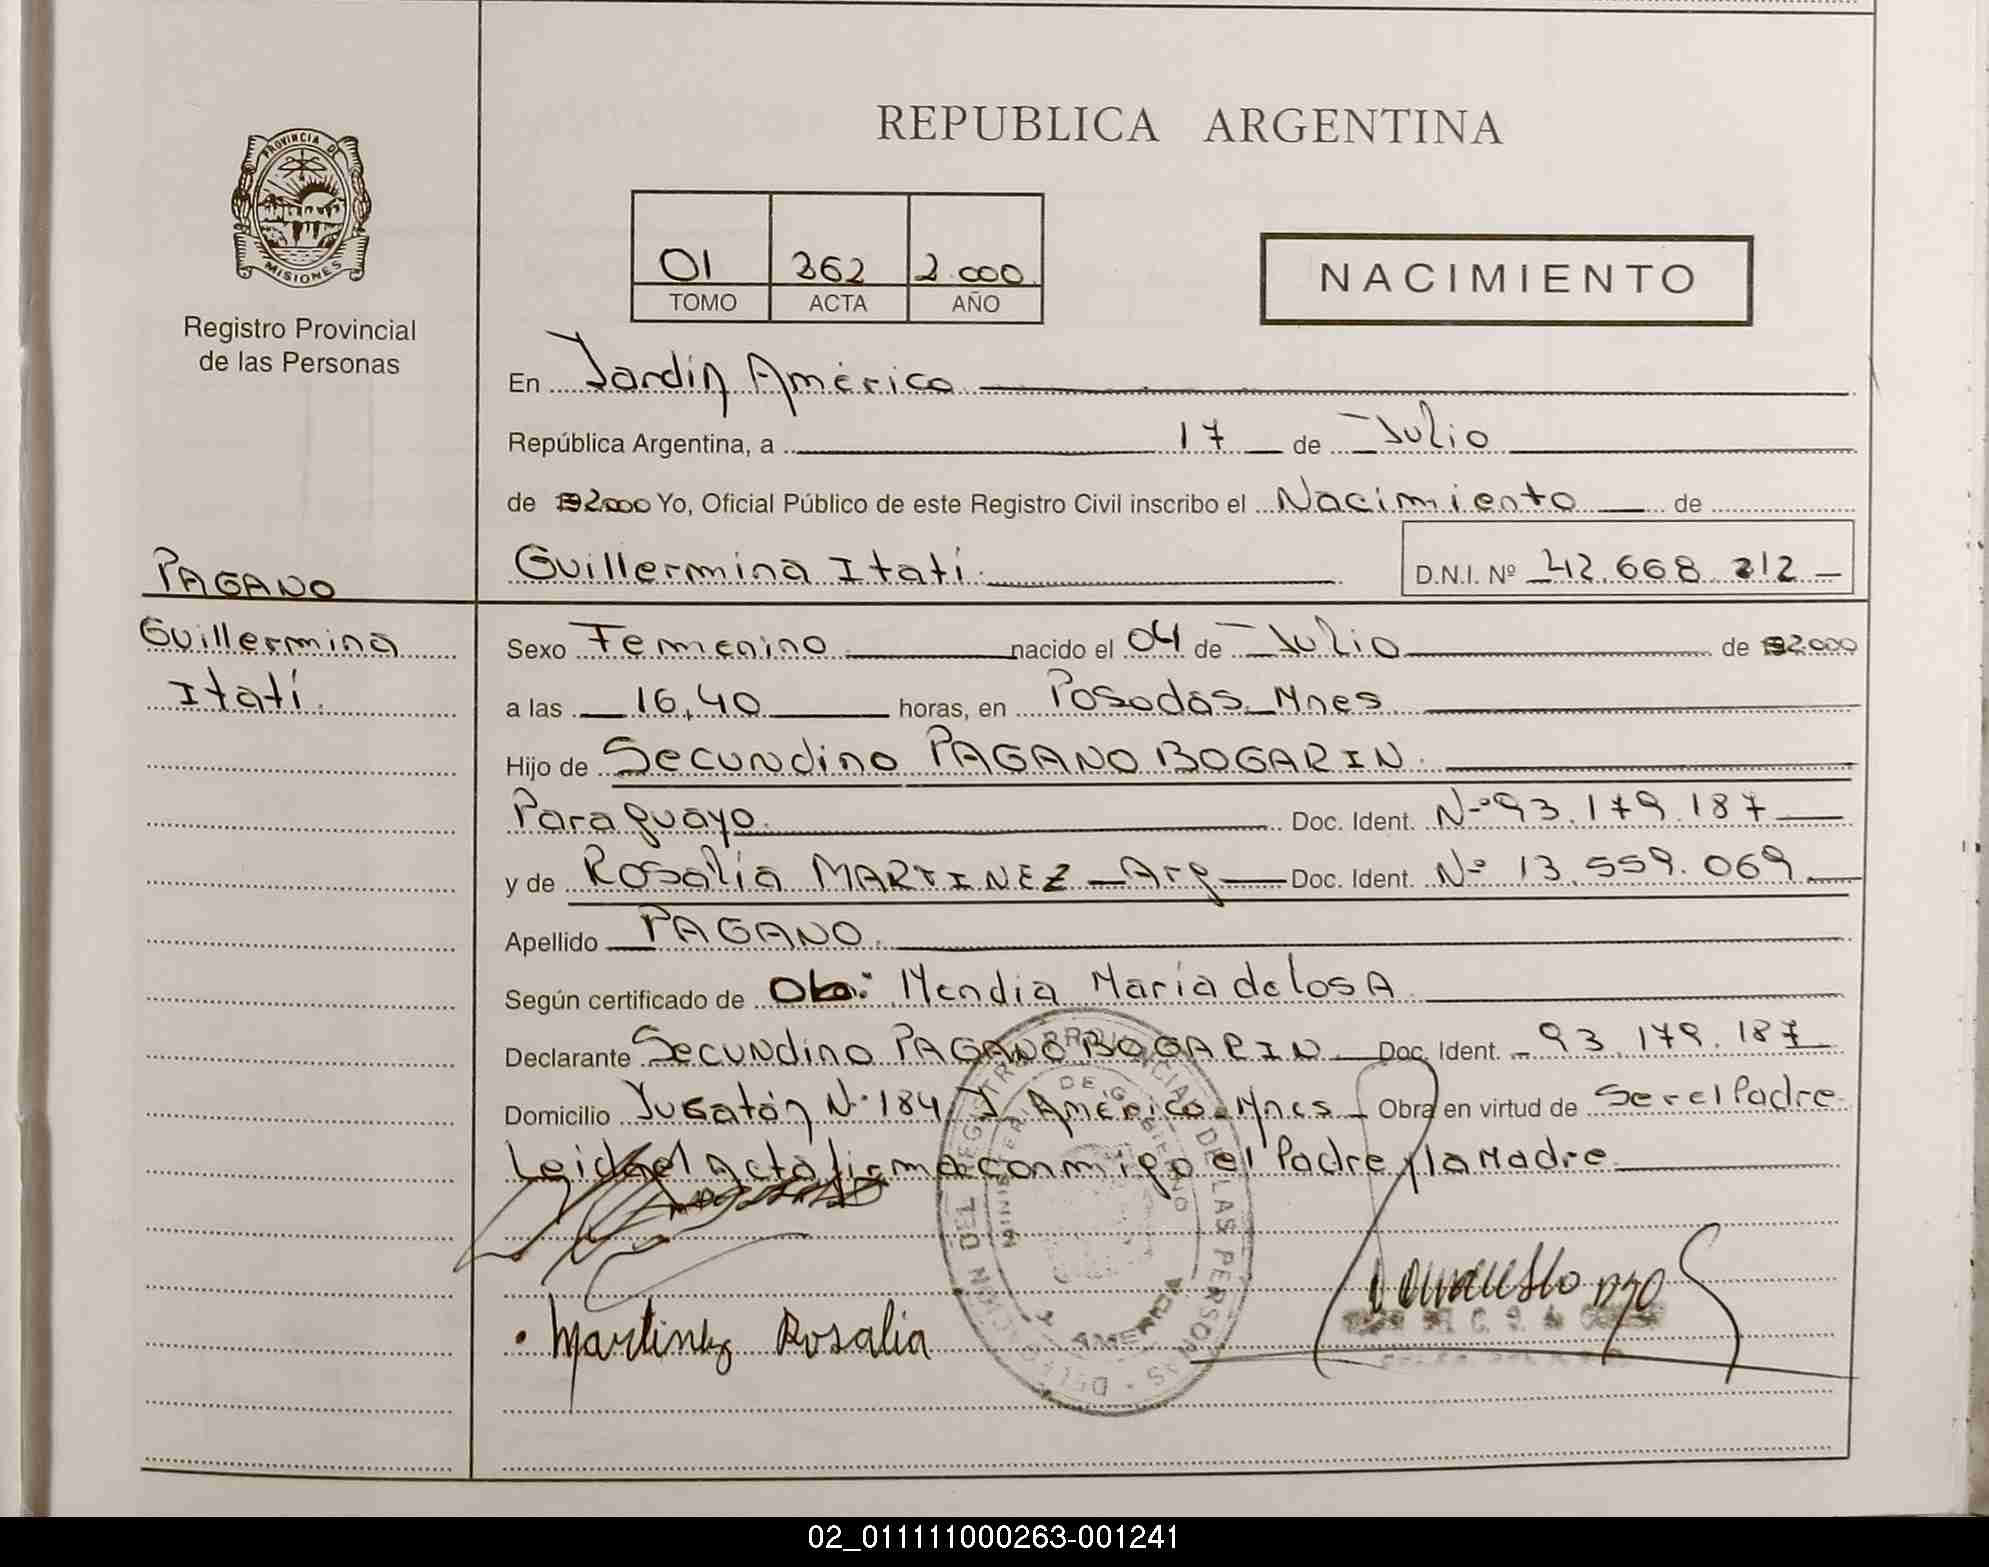 REPUBLICA ARGENTINA
PROVINCIA DE
MISIONES
Registro Provincial
de las Personas
01 362 2.000
TOMO ACTA AÑO
NACIMIENTO
En Jardín América
República Argentina, a 17 de Julio
de 2000 Yo, Oficial Público de este Registro Civil inscribo el Nacimiento de
PAGANO
Guillermina Itatí. D.N.I. Nº 42.668.212
Guillermina
Itatí.
Sexo Femenino nacido el 04 de Julio de 2.000
a las 16,40 horas, en Posadas Mnes
Hijo de Secundino PAGANO BOGARIN.
Paraguayo. Doc. Ident. Nº 93.179.187
y de Rosalía MARTINEZ Arg Doc. Ident. Nº 13.559.069
Apellido PAGANO.
Según certificado de Obs: Mendia María de los A
Declarante Secundino PAGANO BOGARIN Doc. Ident. 93.179.187
Domicilio Yucatán Nº 184 J. América Mnes Obra en virtud de Ser el Padre
Leida el Acta firma conmigo el Padre y la Madre
DE LAS PERSONAS
AMERICA
Martinez Rosalia
02_011111000263-001241